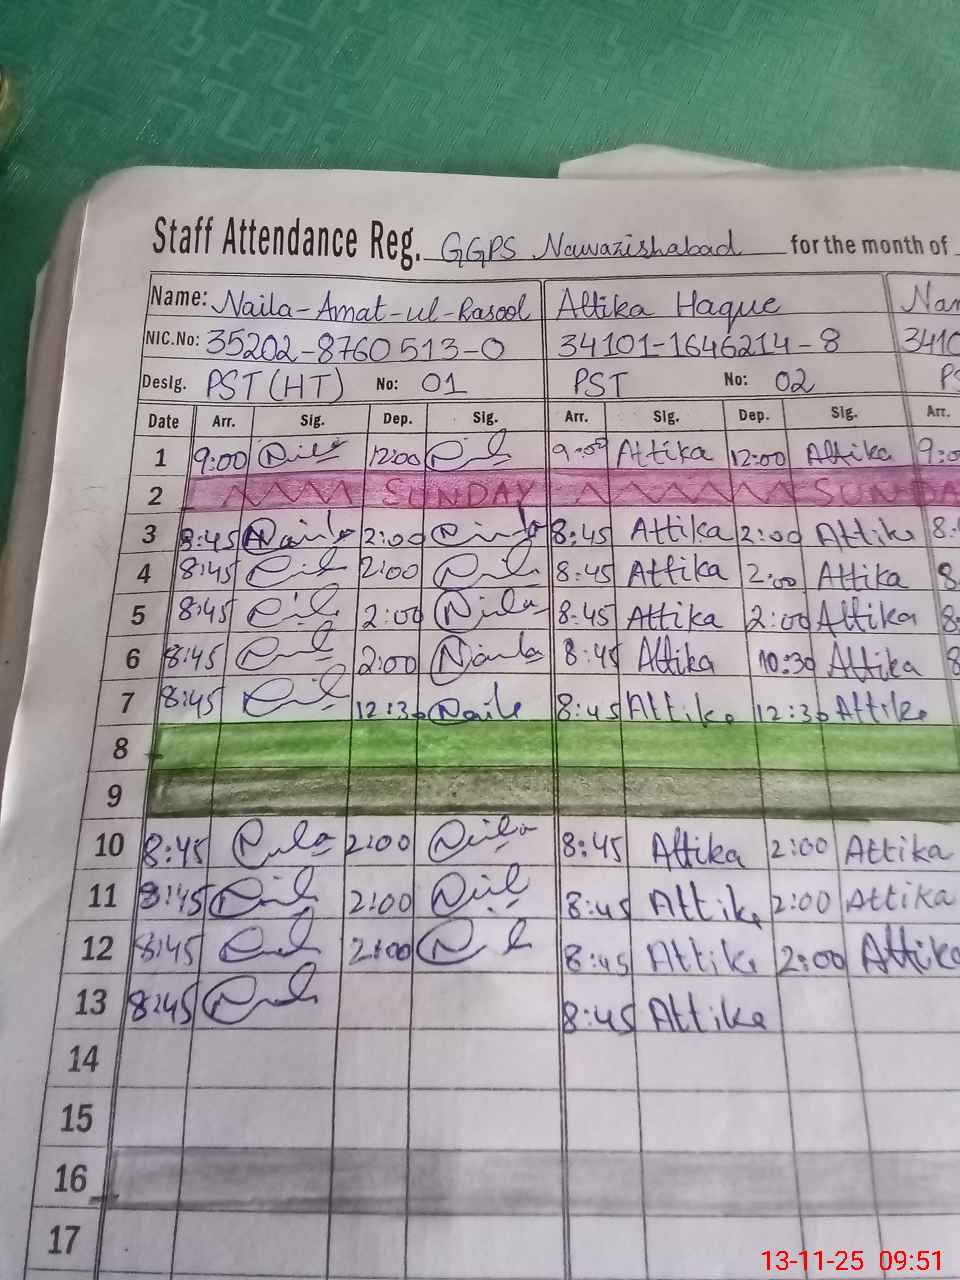 Staff Attendance Reg. GGPS Nawazishabad for the month of
Name: Naila-Amat-ul-Rasool Attika Haque Nam
NIC.No: 35202-8760513-0 34101-1646214-8 3410
Desig. PST (HT) No: 01 PST No: 02 PS
Date Arr. Sig. Dep. Sig. Arr. Sig. Dep. Sig. Arr.
1 9:00 12:00 9:00 Attika 12:00 Attika 9:0
2 SUNDAY SUNDA
3 8:45 Naila 2:00 8:45 Attika 2:00 Attik 8:
4 8:45 2:00 8:45 Attika 2:00 Attika 8
5 8:45 2:00 Naila 8:45 Attika 2:00 Attika 8:
6 8:45 2:00 Naila 8:45 Attika 10:30 Attika 8
7 8:45 12:30 Naile 8:45 Attike 12:30 Attike
8
9
10 8:45 2:00 8:45 Attika 2:00 Attika
11 8:45 2:00 8:45 Attike 2:00 Attika
12 8:45 2:00 8:45 Attike 2:00 Attika
13 8:45 8:45 Attike
14
15
16
17
13-11-25 09:51